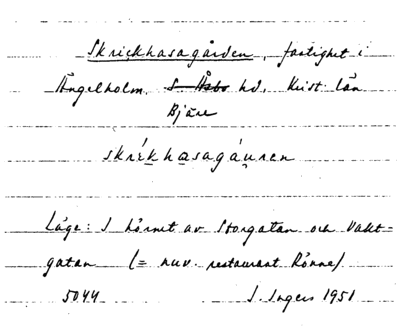 Skrickhasagården, fastighet i
Ängelholm. S Åsbo hd, Krist. län
Bjäre
skríkhasagáu̯ren
Läge: I hörnet av Storgatan och Vakt-
gatan (= nuv. restaurant Rönne)
5044 I. Ingers 1951